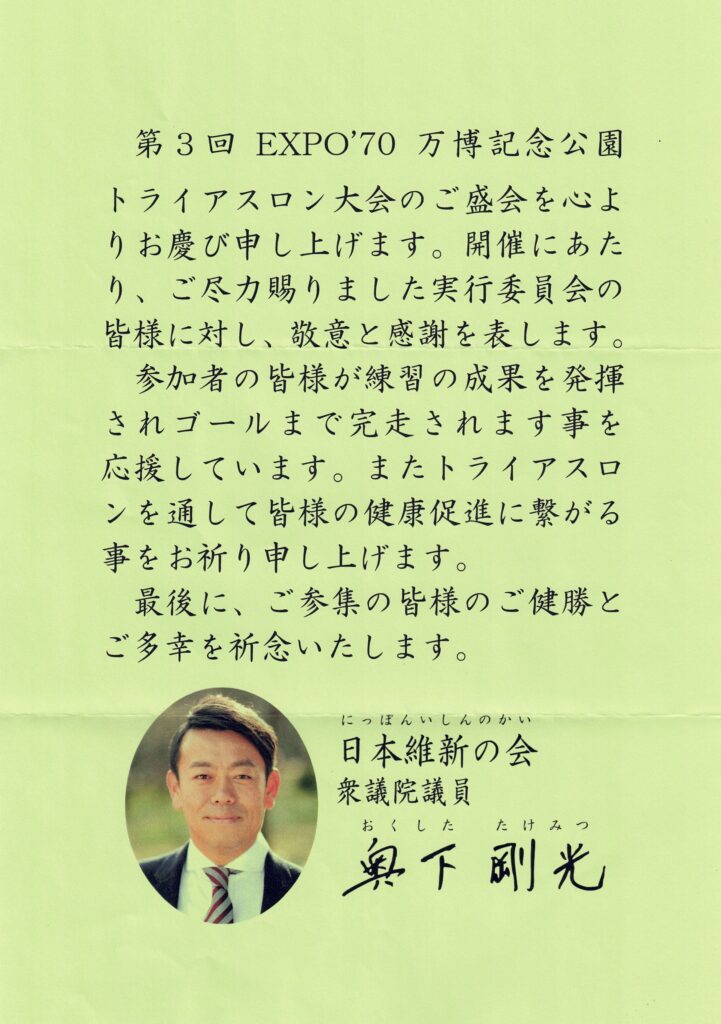 第3回 EXPO’70 万博記念公園
トライアスロン大会のご盛会を心よ
りお慶び申し上げます。開催にあた
り、ご尽力賜りました実行委員会の
皆様に対し、敬意と感謝を表します。
参加者の皆様が練習の成果を発揮
されゴールまで完走されます事を
応援しています。またトライアスロ
ンを通して皆様の健康促進に繋がる
事をお祈り申し上げます。
最後に、ご参集の皆様のご健勝と
ご多幸を祈念いたします。
にっぽんいしんのかい
日本維新の会
衆議院議員
おくした たけみつ
奥下剛光